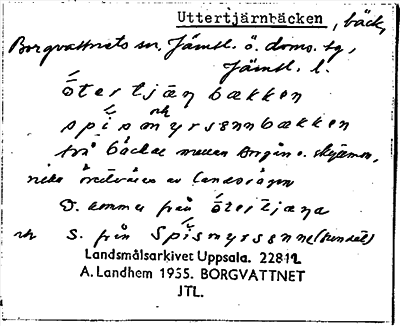 Uttertjärnbäcken, bäck,
Borgvattnets sn, Jämtl. ö. doms. tg,
Jämtl. l.
ötertjæn bækken
och
spismyrsænnbækken
två bäckar mellan Borgån o.
av landsvägen
D. kommer från ötertjæna
och S. från Spismyrsænne
Landsmålsarkivet Uppsala. 22812
A. Landhem 1955. BORGVATTNET
JTL.